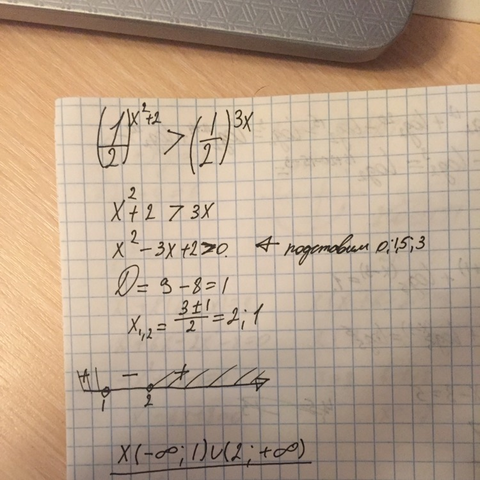 (1/2)^(x²+2) > (1/2)^(3x)
x²+2 > 3x
x²-3x+2>0. ← подставим 0;1,5;3
D = 9-8=1
x₁,₂ = (3±1)/2 = 2;1
+ - +
1 2
x(-∞;1)∪(2;+∞)